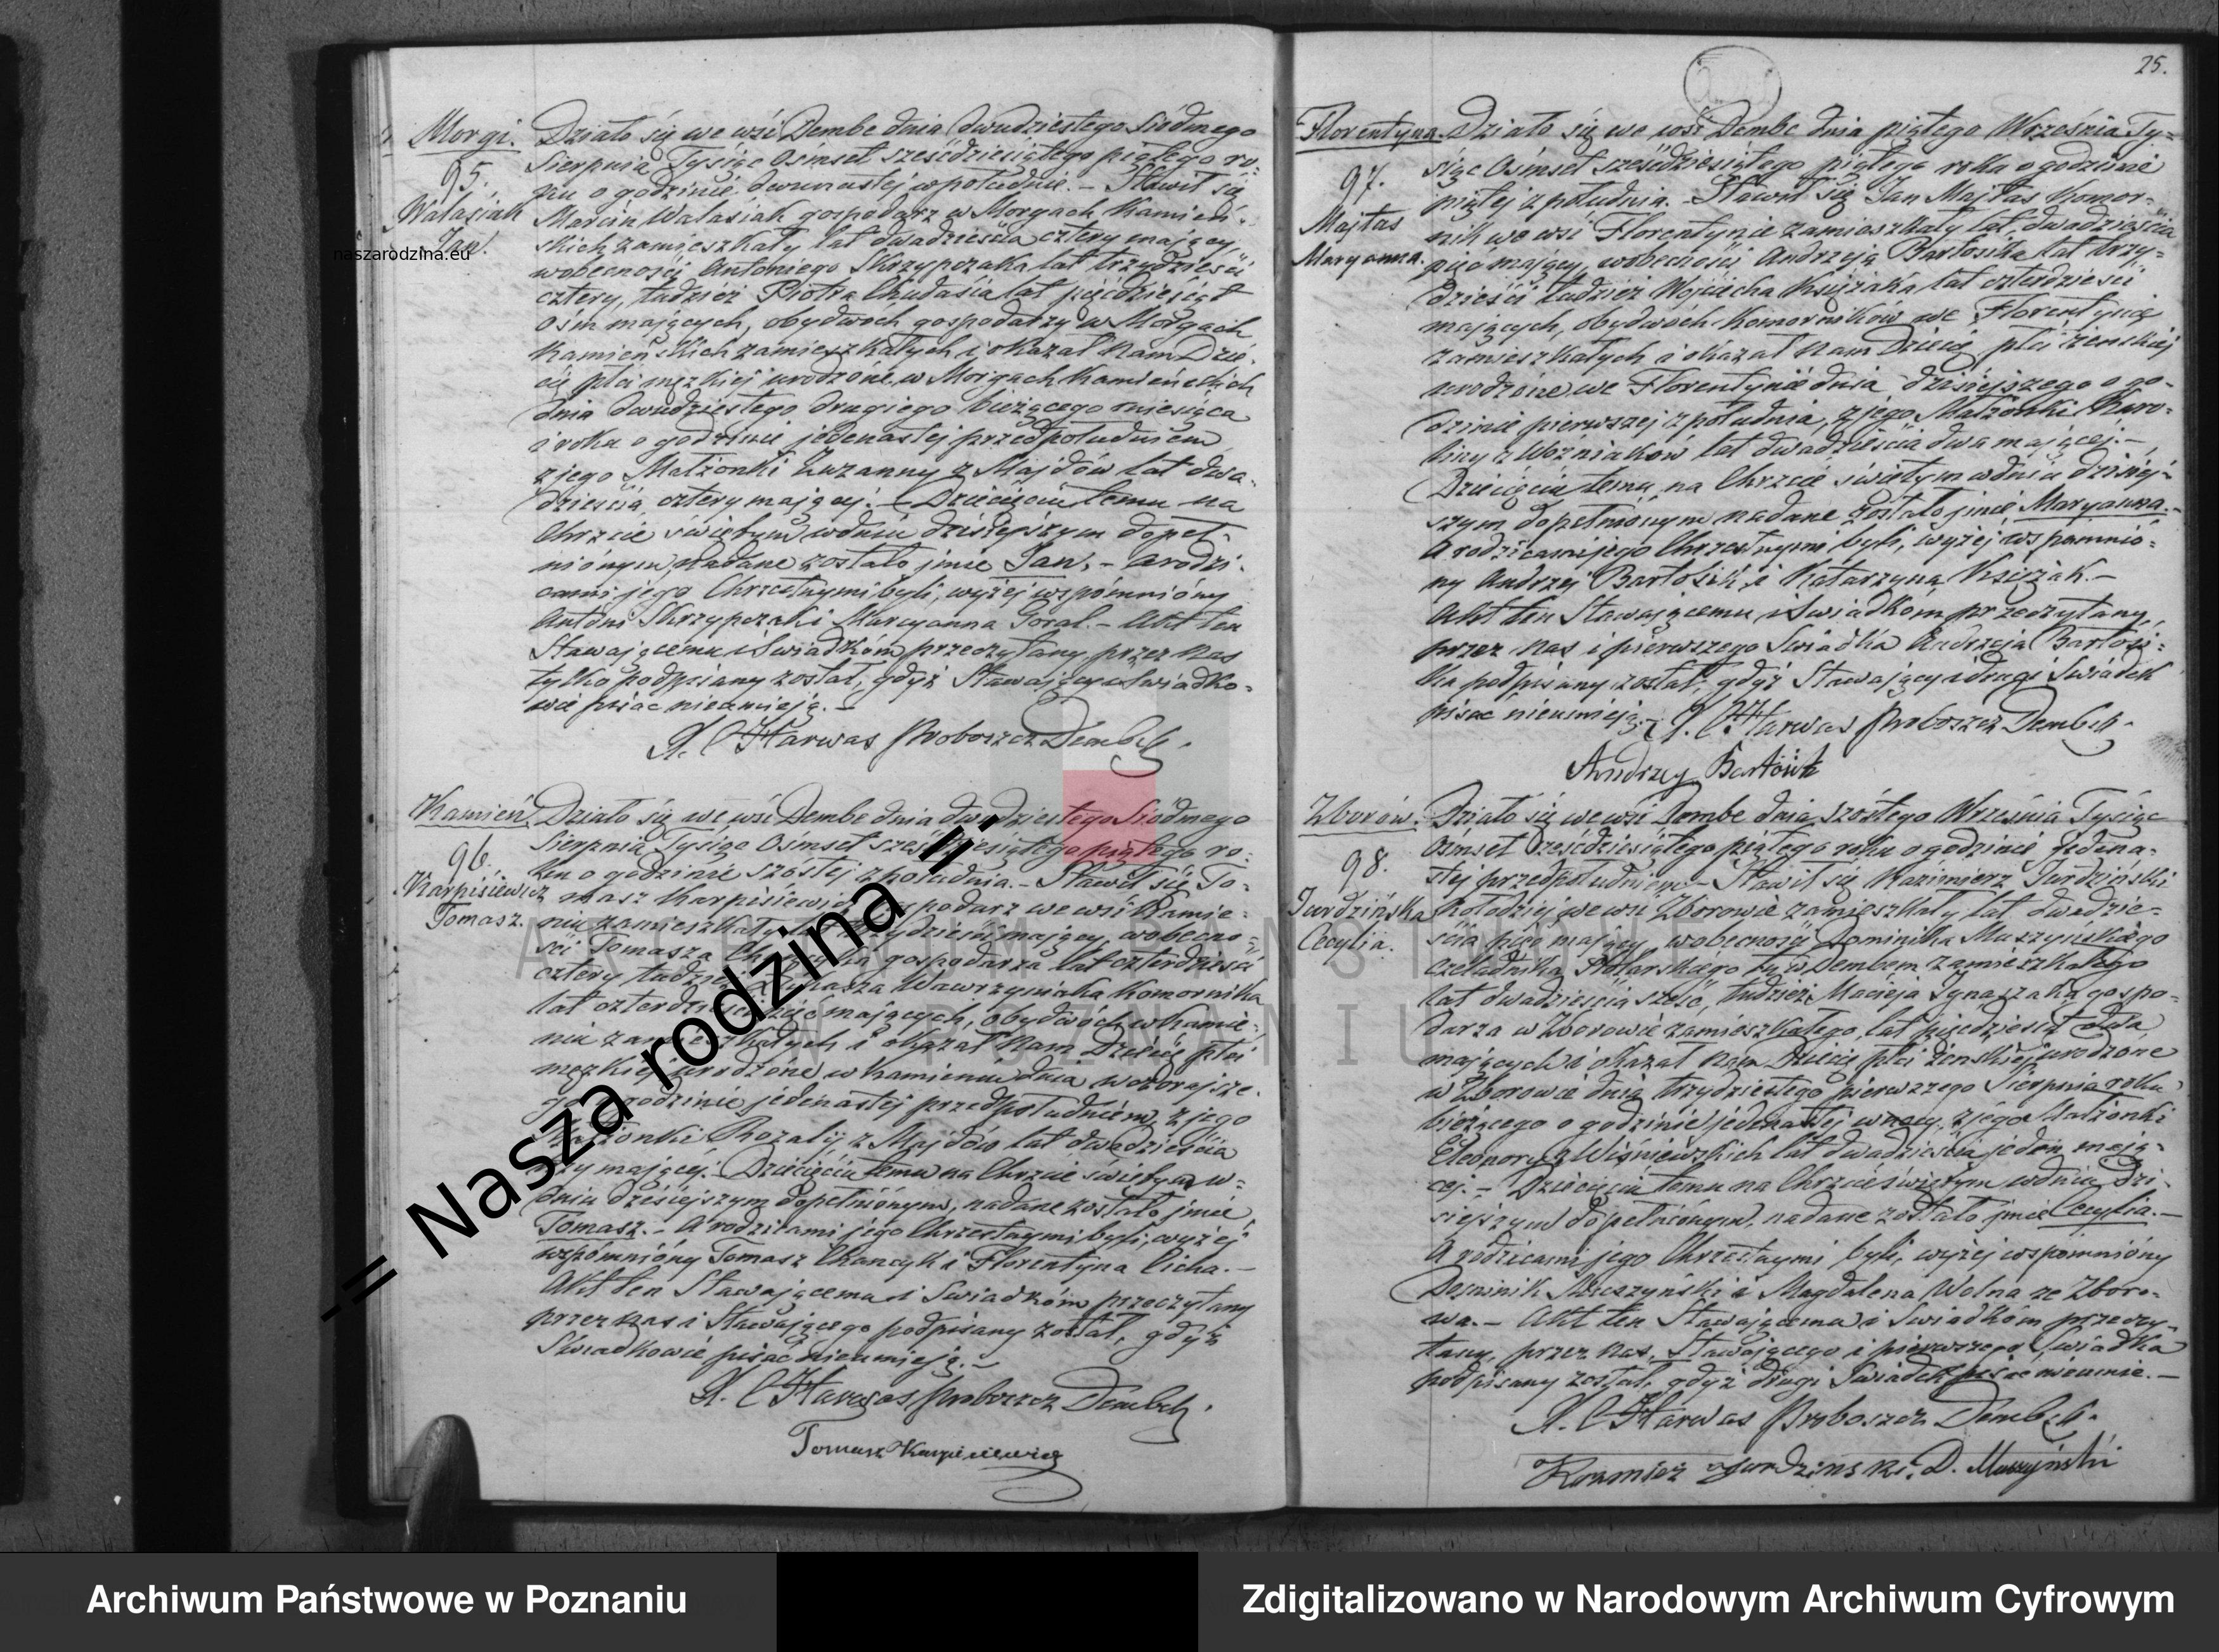 25.
Morgi.
95.
Walasiak
Jan.
Działo się we wsi Dembe dnia dwudziestego Siódmego
Sierpnia Tysiąc Ośmset sześćdziesiątego piątego ro-
ku o godzinie dwunastej w południe. – Stawił się
Marcin Walasiak gospodarz w Morgach Kamień-
skich zamieszkały lat dwadzieścia cztery mający,
w obecności Antoniego Skrzypczaka lat trzydzieści
cztery, tudzież Piotra Chudasia lat pięćdziesiąt
ośm mających, obydwoch gospodarzy w Morgach
Kamieńskich zamieszkałych i okazał nam Dzie-
cię płci męzkiej urodzone w Morgach Kamieńskich
dnia dwudziestego drugiego bieżącego miesiąca
i roku o godzinie jedenastej przed południem
z jego Małżonki Zuzanny z Majdów lat dwa-
dzieścia cztery mającej. – Dziecięciu temu na
Chrzcie świętym w dniu dzisiejszym dopeł-
nionym, nadane zostało jmie Jan, – a rodzi-
cami jego Chrzestnymi byli, wyżej wspomniony
Antoni Skrzypczak i Maryanna Goral. – Akt ten
Stawającemu i Świadkóm przeczytany przez nas
tylko podpisany został, gdyż Stawający i Świadko-
wie pisać nieumieją. –
X. C. Harwas Proboszcz Dembski.
Kamień.
96.
Karpisiewicz
Tomasz.
Działo się we wsi Dembe dnia dwudziestego Siódmego
Sierpnia Tysiąc Ośmset sześćdziesiątego piątego ro-
ku o godzinie szóstej z południa. – Stawił się To-
masz Karpisiewicz gospodarz we wsi Kamie-
niu zamieszkały lat trzydzieści mający, w obecno-
ści Tomasza gospodarza lat czterdzieści
cztery tudzież Łukasza Wawrzyniaka Komornika
lat czterdzieści pięć mających, obydwóch w Kamie-
niu zamieszkałych i okazał nam Dziecię płci
męzkiej urodzone w Kamieniu dnia wczorajsze-
go o godzinie jedenastej przed południem, z jego
Małżonki Rozalij z Majdów lat dwadzieścia
trzy mającej. Dziecięciu temu na Chrzcie świętym w-
dniu dzisiejszym dopełnionym, nadane zostało jmie
Tomasz. – A rodzicami jego Chrzestnymi byli, wyżej
wspomniony Tomasz i Florentyna Cicha. –
Akt ten Stawającemu i Świadkóm przeczytany
przez nas i Stawającego podpisany został, gdyż
Świadkowie pisać nieumieją. –
X. C. Harwas Proboszcz Dembski.
Tomasz Karpisiewicz
Florentyna.
97.
Majtas
Maryanna.
Działo się we wsi Dembe dnia piątego Września Ty-
siąc Ośmset sześćdziesiątego piątego roku o godzinie
piątej z południa. – Stawił się Jan Majtas Komor-
nik we wsi Florentynie zamieszkały lat dwadzieścia
pięć mający, w obecności Andrzeja Bartosika lat trzy-
dzieści tudzież Wojciecha Księżaka lat czterdzieści
mających, obydwoch Komorników we Florentynie
zamieszkałych i okazał nam Dziecię płci żenskiej
urodzone we Florentynie dnia dzisiejszego o go-
dzinie pierwszej z południa, z jego Małżonki Karo-
liny z Woźniaków lat dwadzieścia dwa mającej. –
Dziecięciu temu na Chrzcie świętym w dniu dzisiej-
szym dopełnionym nadane zostało jmie Maryanna. –
A rodzicami jego Chrzestnymi byli, wyżej wspomnio-
ny Andrzej Bartosik i Katarzyna Księżak. –
Akt ten Stawającemu i Świadkom przeczytany,
przez nas i pierwszego Świadka Andrzeja Bartosi-
ka podpisany został, gdyż Stawający i drugi Świadek
pisać nieumieją. – X. C. Harwas Proboszcz Dembski.
Andrzej Bartosik
Zborów.
98.
Jurdzińska
Cecylia.
Działo się we wsi Dembe dnia szóstego Września Tysiąc
Ośmset sześćdziesiątego piątego roku o godzinie jedena-
stej przed południem – Stawił się Kazimierz Jurdziński
Kołodziej we wsi Zborowie zamieszkały lat dwadzie-
ścia pięć mający, w obecności Dominika Muszyńskiego
czeladnika Stolarskiego tu w Dembem zamieszkałego
lat dwadzieścia sześć, tudzież Macieja Ignaszaka gospo-
darza w Zborowie zamieszkałego, lat pięćdziesiąt dwa
mających i okazał nam Dziecię płci żenskiej urodzone
w Zborowie dnia trzydziestego pierwszego Sierpnia roku
bieżącego o godzinie jedenastej w nocy, z jego Małżonki
Eleonory z Wiśniewskich lat dwadzieścia jeden mają-
cej. – Dziecięciu temu na Chrzcie świętym w dniu dzi-
siejszym dopełnionym, nadane zostało jmie Cecylia. –
A rodzicami jego Chrzestnymi byli, wyżej wspomniony
Dominik Muszyński i Magdalena Wolna ze Zboro-
wa. – Akt ten Stawającemu i Świadkóm przeczy-
tany, przez nas, Stawającego i pierwszego Świadka
podpisany został, gdyż drugi Świadek pisać nieumie. –
X. C. Harwas Proboszcz Dembski.
Kazimierz Jurdzinski. D. Muszyński
naszarodzina.eu
-= Nasza rodzina =-
ARCHIWUM PAŃSTWOWE
W POZNANIU
Archiwum Państwowe w Poznaniu
Zdigitalizowano w Narodowym Archiwum Cyfrowym